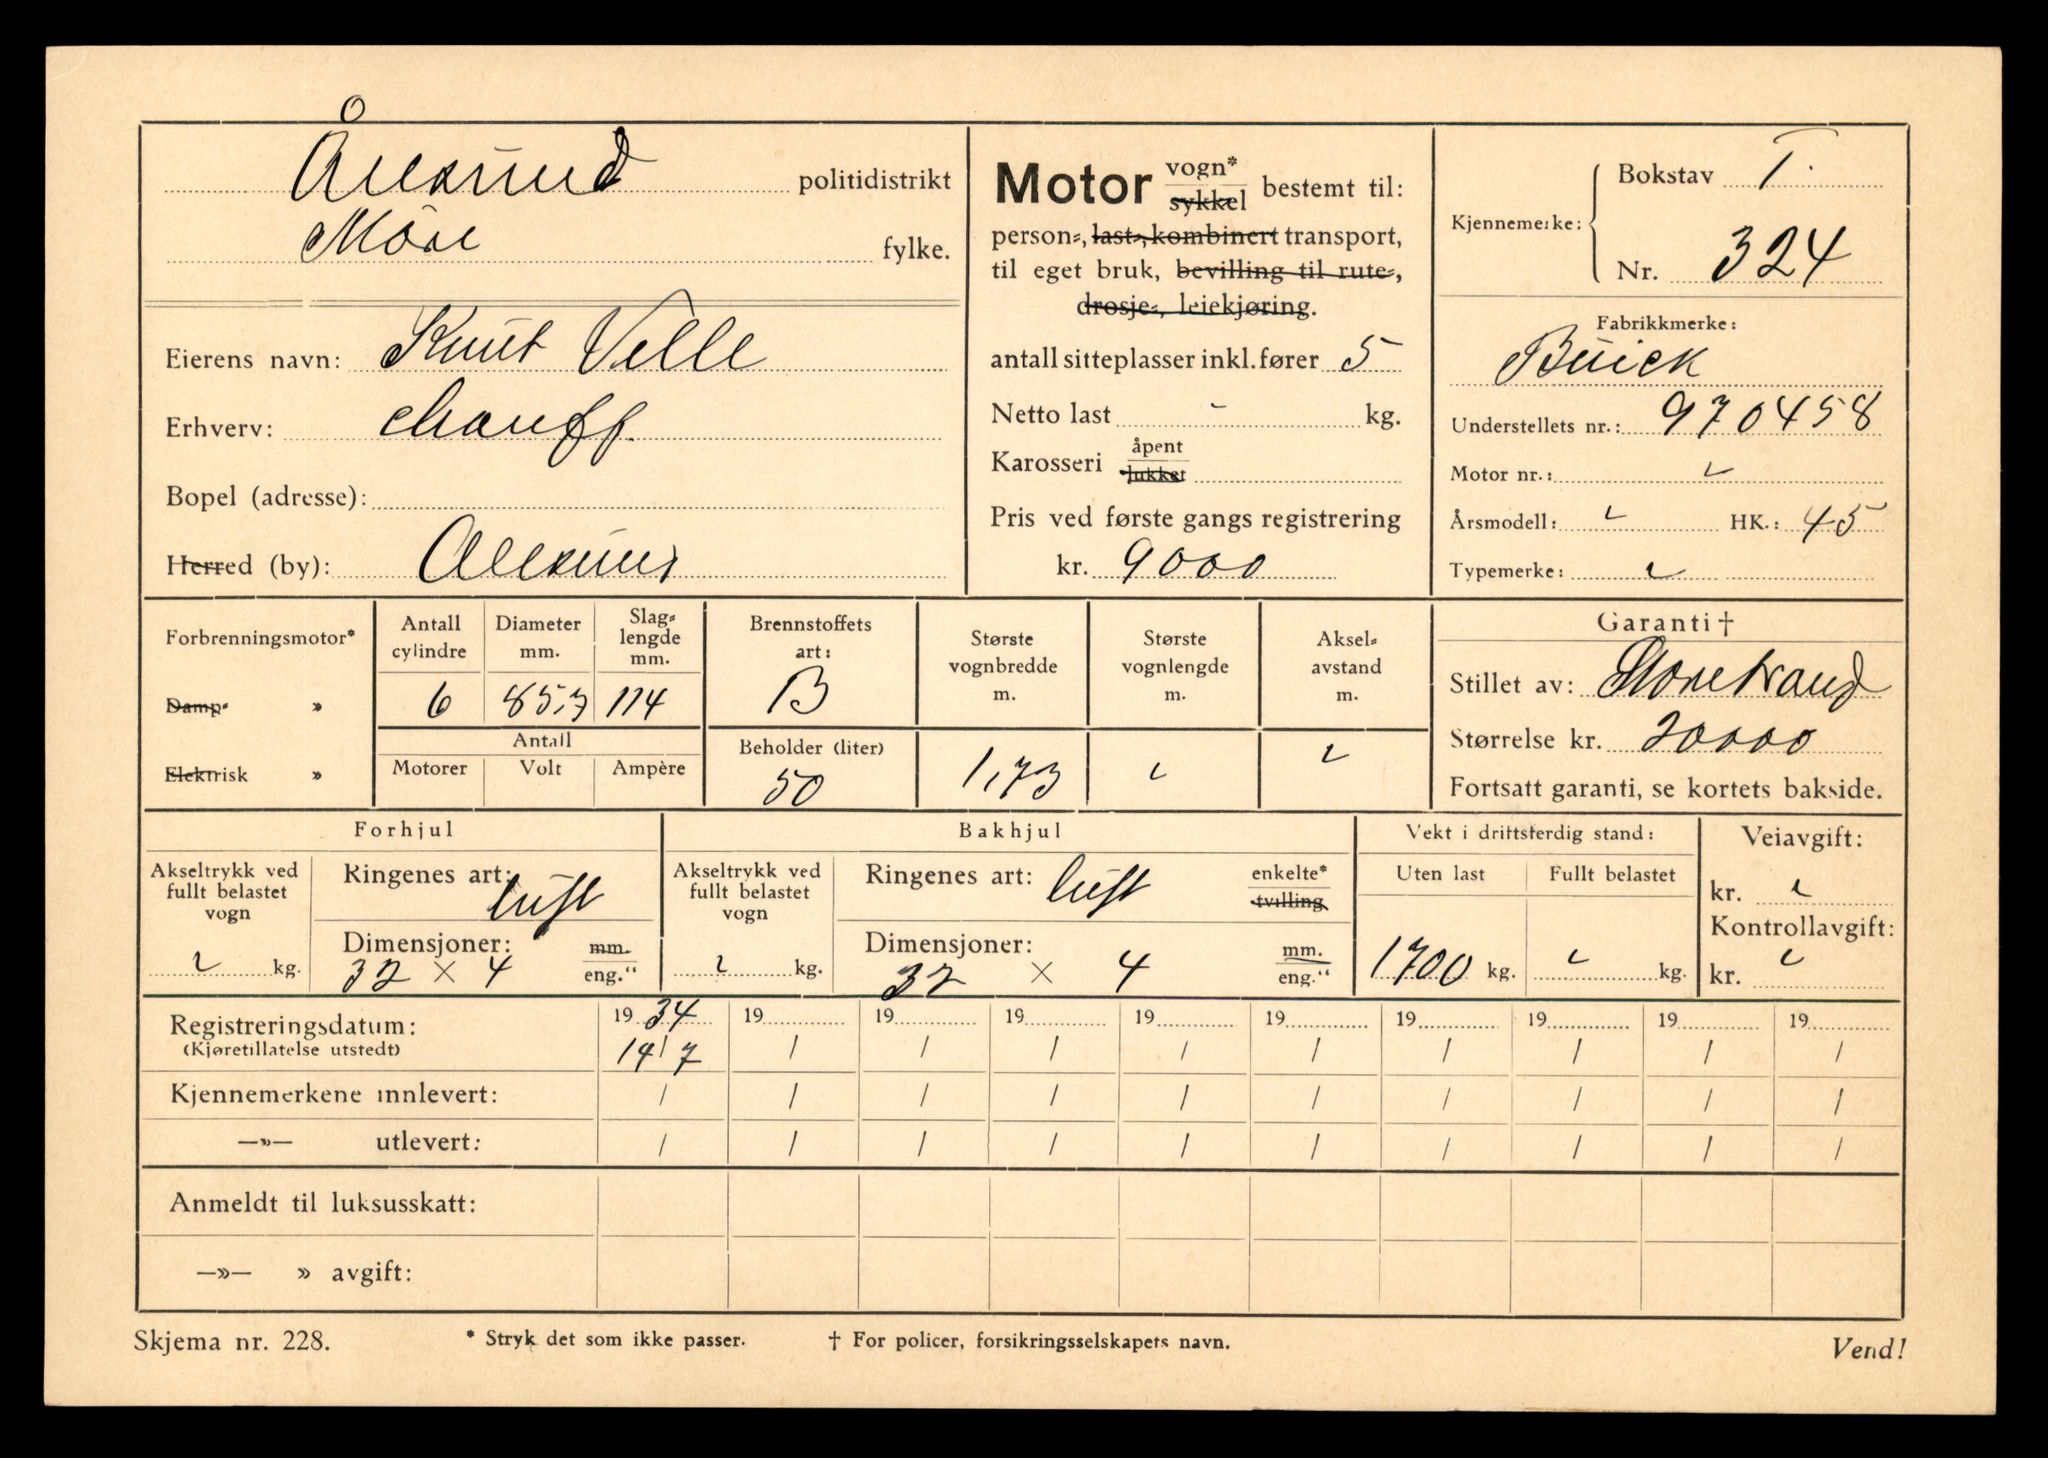 Ålesund politidistrikt
Møre fylke.
Eierens navn: Knut Velle
Erhverv: chauff.
Bopel (adresse):
Herred (by): Ålesund
Motor vogn* sykkel bestemt til:
person-, last-, kombinert transport,
til eget bruk, bevilling til rute-,
drosje-, leiekjøring.
antall sitteplasser inkl. fører 5
Netto last - kg.
Karosseri åpent lukket
Pris ved første gangs registrering
kr. 9000
Kjennemerke: Bokstav T.
Nr. 324
Fabrikkmerke:
Buick
Understellets nr.: 970458
Motor nr.:
Årsmodell: HK.: 45
Typemerke:
Forbrenningsmotor*
Damp- »
Elektrisk »
Antall cylindre
6
Diameter mm.
85,7
Slag-lengde mm.
114
Antall
Motorer Volt Ampère
Brennstoffets art:
B
Beholder (liter)
50
Største vognbredde m.
1,73
Største vognlengde m.
Aksel-avstand m.
Garanti †
Stillet av: Storebrand
Størrelse kr. 20000
Fortsatt garanti, se kortets bakside.
Forhjul
Akseltrykk ved fullt belastet vogn
kg.
Ringenes art: luft
Dimensjoner: mm. eng."
32 × 4
Bakhjul
Akseltrykk ved fullt belastet vogn
kg.
Ringenes art: luft enkelte* tvilling
Dimensjoner: mm. eng."
32 × 4
Vekt i driftsferdig stand:
Uten last Fullt belastet
1700 kg. kg.
Veiavgift:
kr.
Kontrollavgift:
kr.
Registreringsdatum: 19 34 19 19 19 19 19 19 19 19 19
(Kjøretillatelse utstedt) 14/7 / / / / / / / / /
Kjennemerkene innlevert: / / / / / / / / / /
—»— utlevert: / / / / / / / / / /
Anmeldt til luksusskatt:
—»— » avgift:
Skjema nr. 228. * Stryk det som ikke passer. † For policer, forsikringsselskapets navn. Vend!